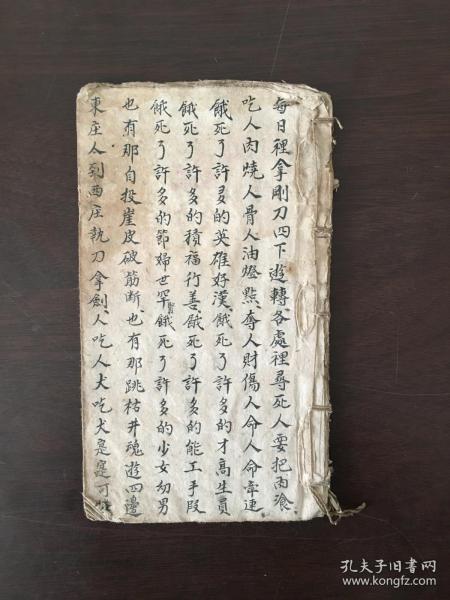 每日裡拿剛刀四下遊轉各處裡尋死人要把肉飡
吃人肉燒人骨人油燈點奪人財傷人命人命牽連
餓死了許多的英雄好漢餓死了許多的才高生員
餓死了許多的積福行善餓死了許多的能工手段
餓死了許多的節婦世罕餓死了許多的少女幼男
也有那自投崖皮破筋断也有那跳枯井魂遊四邊
東庄人到西庄執刀拿劍人吃人犬吃犬是寔可
孔夫子旧书网
www.kongfz.com